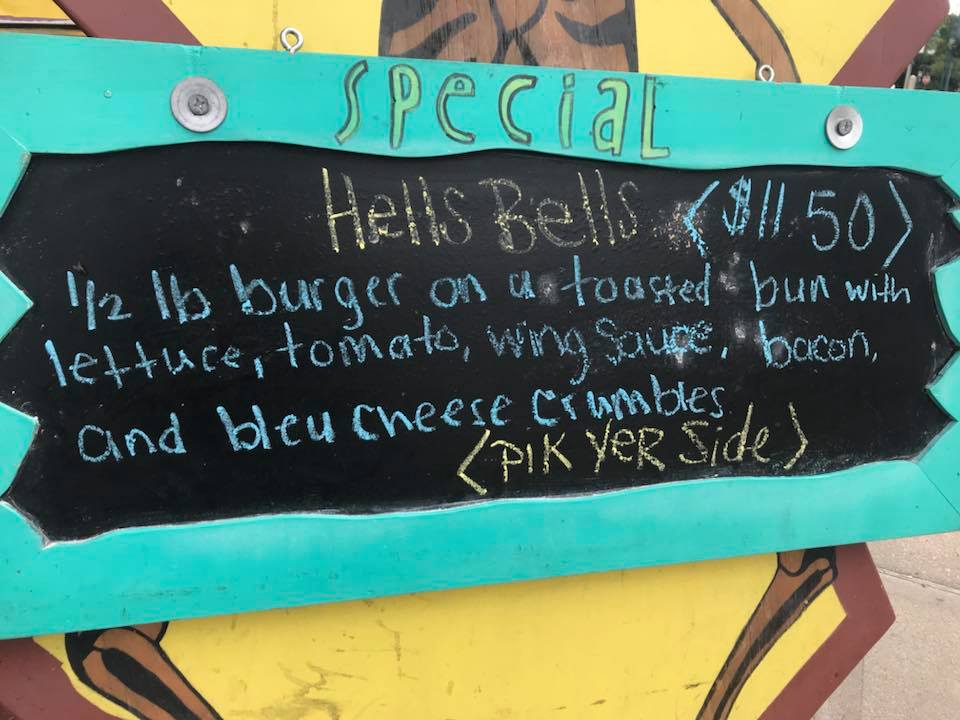 SPECiaL
Hells Bells <$11 50>
1/2 lb burger on a toasted bun with
lettuce, tomato, wing Sauce, bacon,
and bleu cheese crumbles
<PIK YER Side>